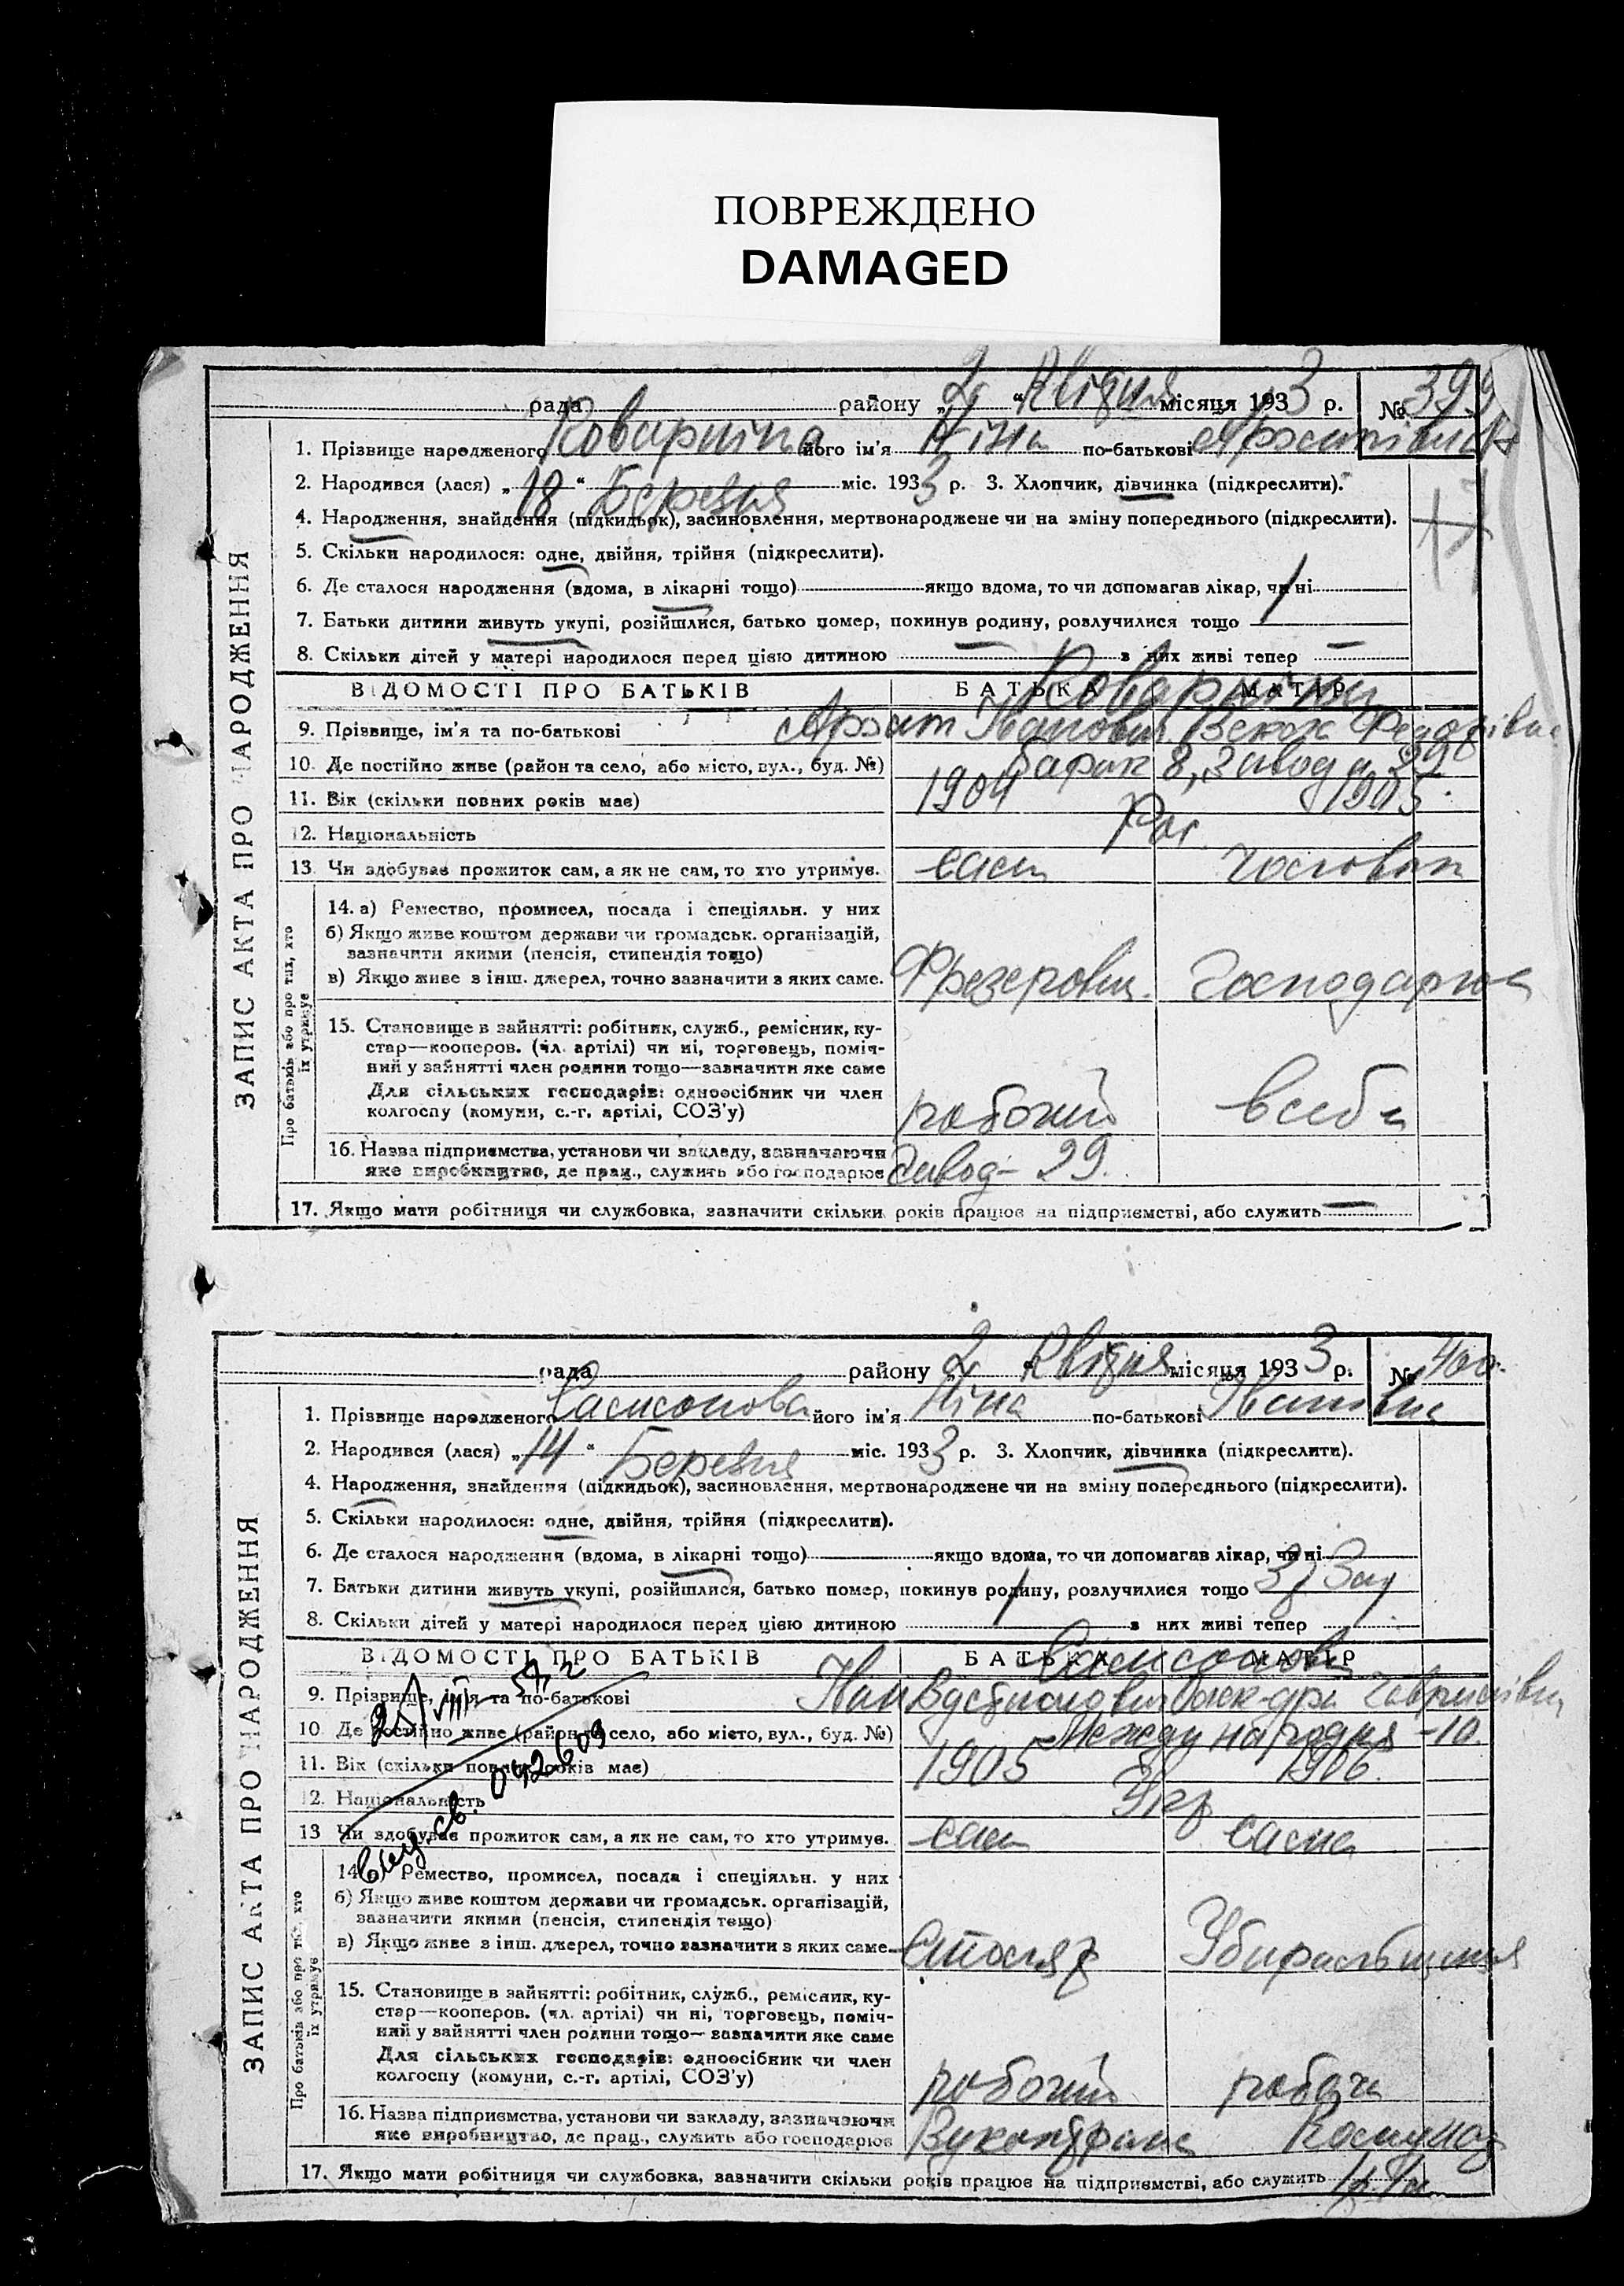 ПОВРЕЖДЕНО
DAMAGED
рада району „2“ Квітня місяця 1933 р. № 399
1. Прізвище народженого його ім'я Ніна по-батькові
2. Народився (лася) „18“ Березня міс. 1933 р. 3. Хлопчик, дівчинка (підкреслити).
4. Народження, знайдення (підкидьок), засиновлення, мертвонароджене чи на зміну попереднього (підкреслити).
5. Скільки народилося: одне, двійня, трійня (підкреслити).
6. Де сталося народження (вдома, в лікарні тощо) якщо вдома, то чи допомагав лікар, чи ні
7. Батьки дитини живуть укупі, розійшлися, батько помер, покинув родину, розлучилися тощо —
8. Скільки дітей у матері народилося перед цією дитиною — з них живі тепер —
ВІДОМОСТІ ПРО БАТЬКІВ БАТЬКА МАТІР
9. Прізвище, ім'я та по-батькові Іванович Федорівна
10. Де постійно живе (район та село, або місто, вул., буд. №) Барак 8, Завод
11. Вік (скільки повних років має) 1904 1905
12. Національність Рос.
13. Чи здобуває прожиток сам, а як не сам, то хто утримує. сам чоловік
14. а) Ремество, промисел, посада і спеціяльн. у них
б) Якщо живе коштом держави чи громадськ. організацій,
зазначити якими (пенсія, стипендія тощо)
в) Якщо живе з інш. джерел, точно зазначити з яких саме. Фрезеровщ. Господарка
15. Становище в зайнятті: робітник, служб., ремісник, ку-
стар—кооперов. (чл. артілі) чи ні, торговець, поміч-
ний у зайнятті член родини тощо—зазначити яке саме
Для сільських господарів: одноосібник чи член
колгоспу (комуни, с.-г. артілі, СОЗ'у) робочий
16. Назва підприємства, установи чи закладу, зазначаючи
яке виробництво, де прац., служить або господарює Завод-29.
17. Якщо мати робітниця чи службовка, зазначити скільки років працює на підприємстві, або служить —
ЗАПИС АКТА ПРО НАРОДЖЕННЯ
Про батьків або про тих, хто
їх утримує
рада району „2“ Квітня місяця 1933 р. № 400.
1. Прізвище народженого Самсонова його ім'я Ніна по-батькові Іванівна
2. Народився (лася) „14“ Березня міс. 1933 р. 3. Хлопчик, дівчинка (підкреслити).
4. Народження, знайдення (підкидьок), засиновлення, мертвонароджене чи на зміну попереднього (підкреслити).
5. Скільки народилося: одне, двійня, трійня (підкреслити).
6. Де сталося народження (вдома, в лікарні тощо) якщо вдома, то чи допомагав лікар, чи ні
7. Батьки дитини живуть укупі, розійшлися, батько помер, покинув родину, розлучилися тощо
8. Скільки дітей у матері народилося перед цією дитиною з них живі тепер
ВІДОМОСТІ ПРО БАТЬКІВ БАТЬКА МАТІР
Самсонови
9. Прізвище, ім'я та по-батькові Іван Гаврилівна
10. Де постійно живе (район та село, або місто, вул., буд. №) Международня -10.
11. Вік (скільки повних років має) 1905 1906.
12. Національність Укр
13. Чи здобуває прожиток сам, а як не сам, то хто утримує. сам сама
14. а) Ремество, промисел, посада і спеціяльн. у них
б) Якщо живе коштом держави чи громадськ. організацій,
зазначити якими (пенсія, стипендія тощо)
в) Якщо живе з інш. джерел, точно зазначити з яких саме. Столяр Убиральщиця
15. Становище в зайнятті: робітник, служб., ремісник, ку-
стар—кооперов. (чл. артілі) чи ні, торговець, поміч-
ний у зайнятті член родини тощо—зазначити яке саме
Для сільських господарів: одноосібник чи член
колгоспу (комуни, с.-г. артілі, СОЗ'у) робочий робоча
16. Назва підприємства, установи чи закладу, зазначаючи
яке виробництво, де прац., служить або господарює
17. Якщо мати робітниця чи службовка, зазначити скільки років працює на підприємстві, або служить
ЗАПИС АКТА ПРО НАРОДЖЕННЯ
Про батьків або про тих, хто
їх утримує
св. 042609